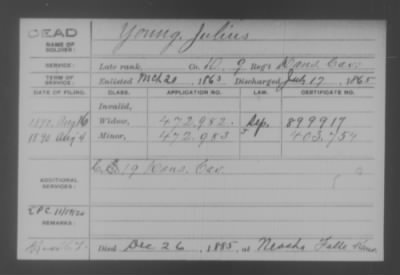 DEAD
NAME OF SOLDIER:
Young, Julius
SERVICE:
Late rank, Co. D. 9 Reg't Kans. Cav.
TERM OF SERVICE:
Enlisted Mch 20 1863 Discharged July 17, 1865
DATE OF FILING. CLASS. APPLICATION NO. LAW. CERTIFICATE NO.
Invalid,
Aug 16 Widow, 472.982. 899917
1890 Aug 4 Minor, 472.983 403.754
ADDITIONAL SERVICES:
19 Kans. Cav.
REMARKS:
Died Dec 26, 1885, at Neosho Falls Kans.